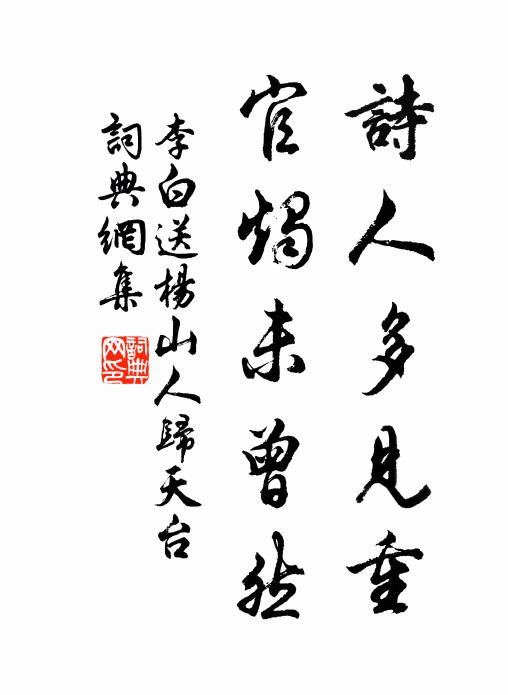 詩人多見重
官燭未曾然
李白送楊山人歸天台
詞典網集
詞典
网印